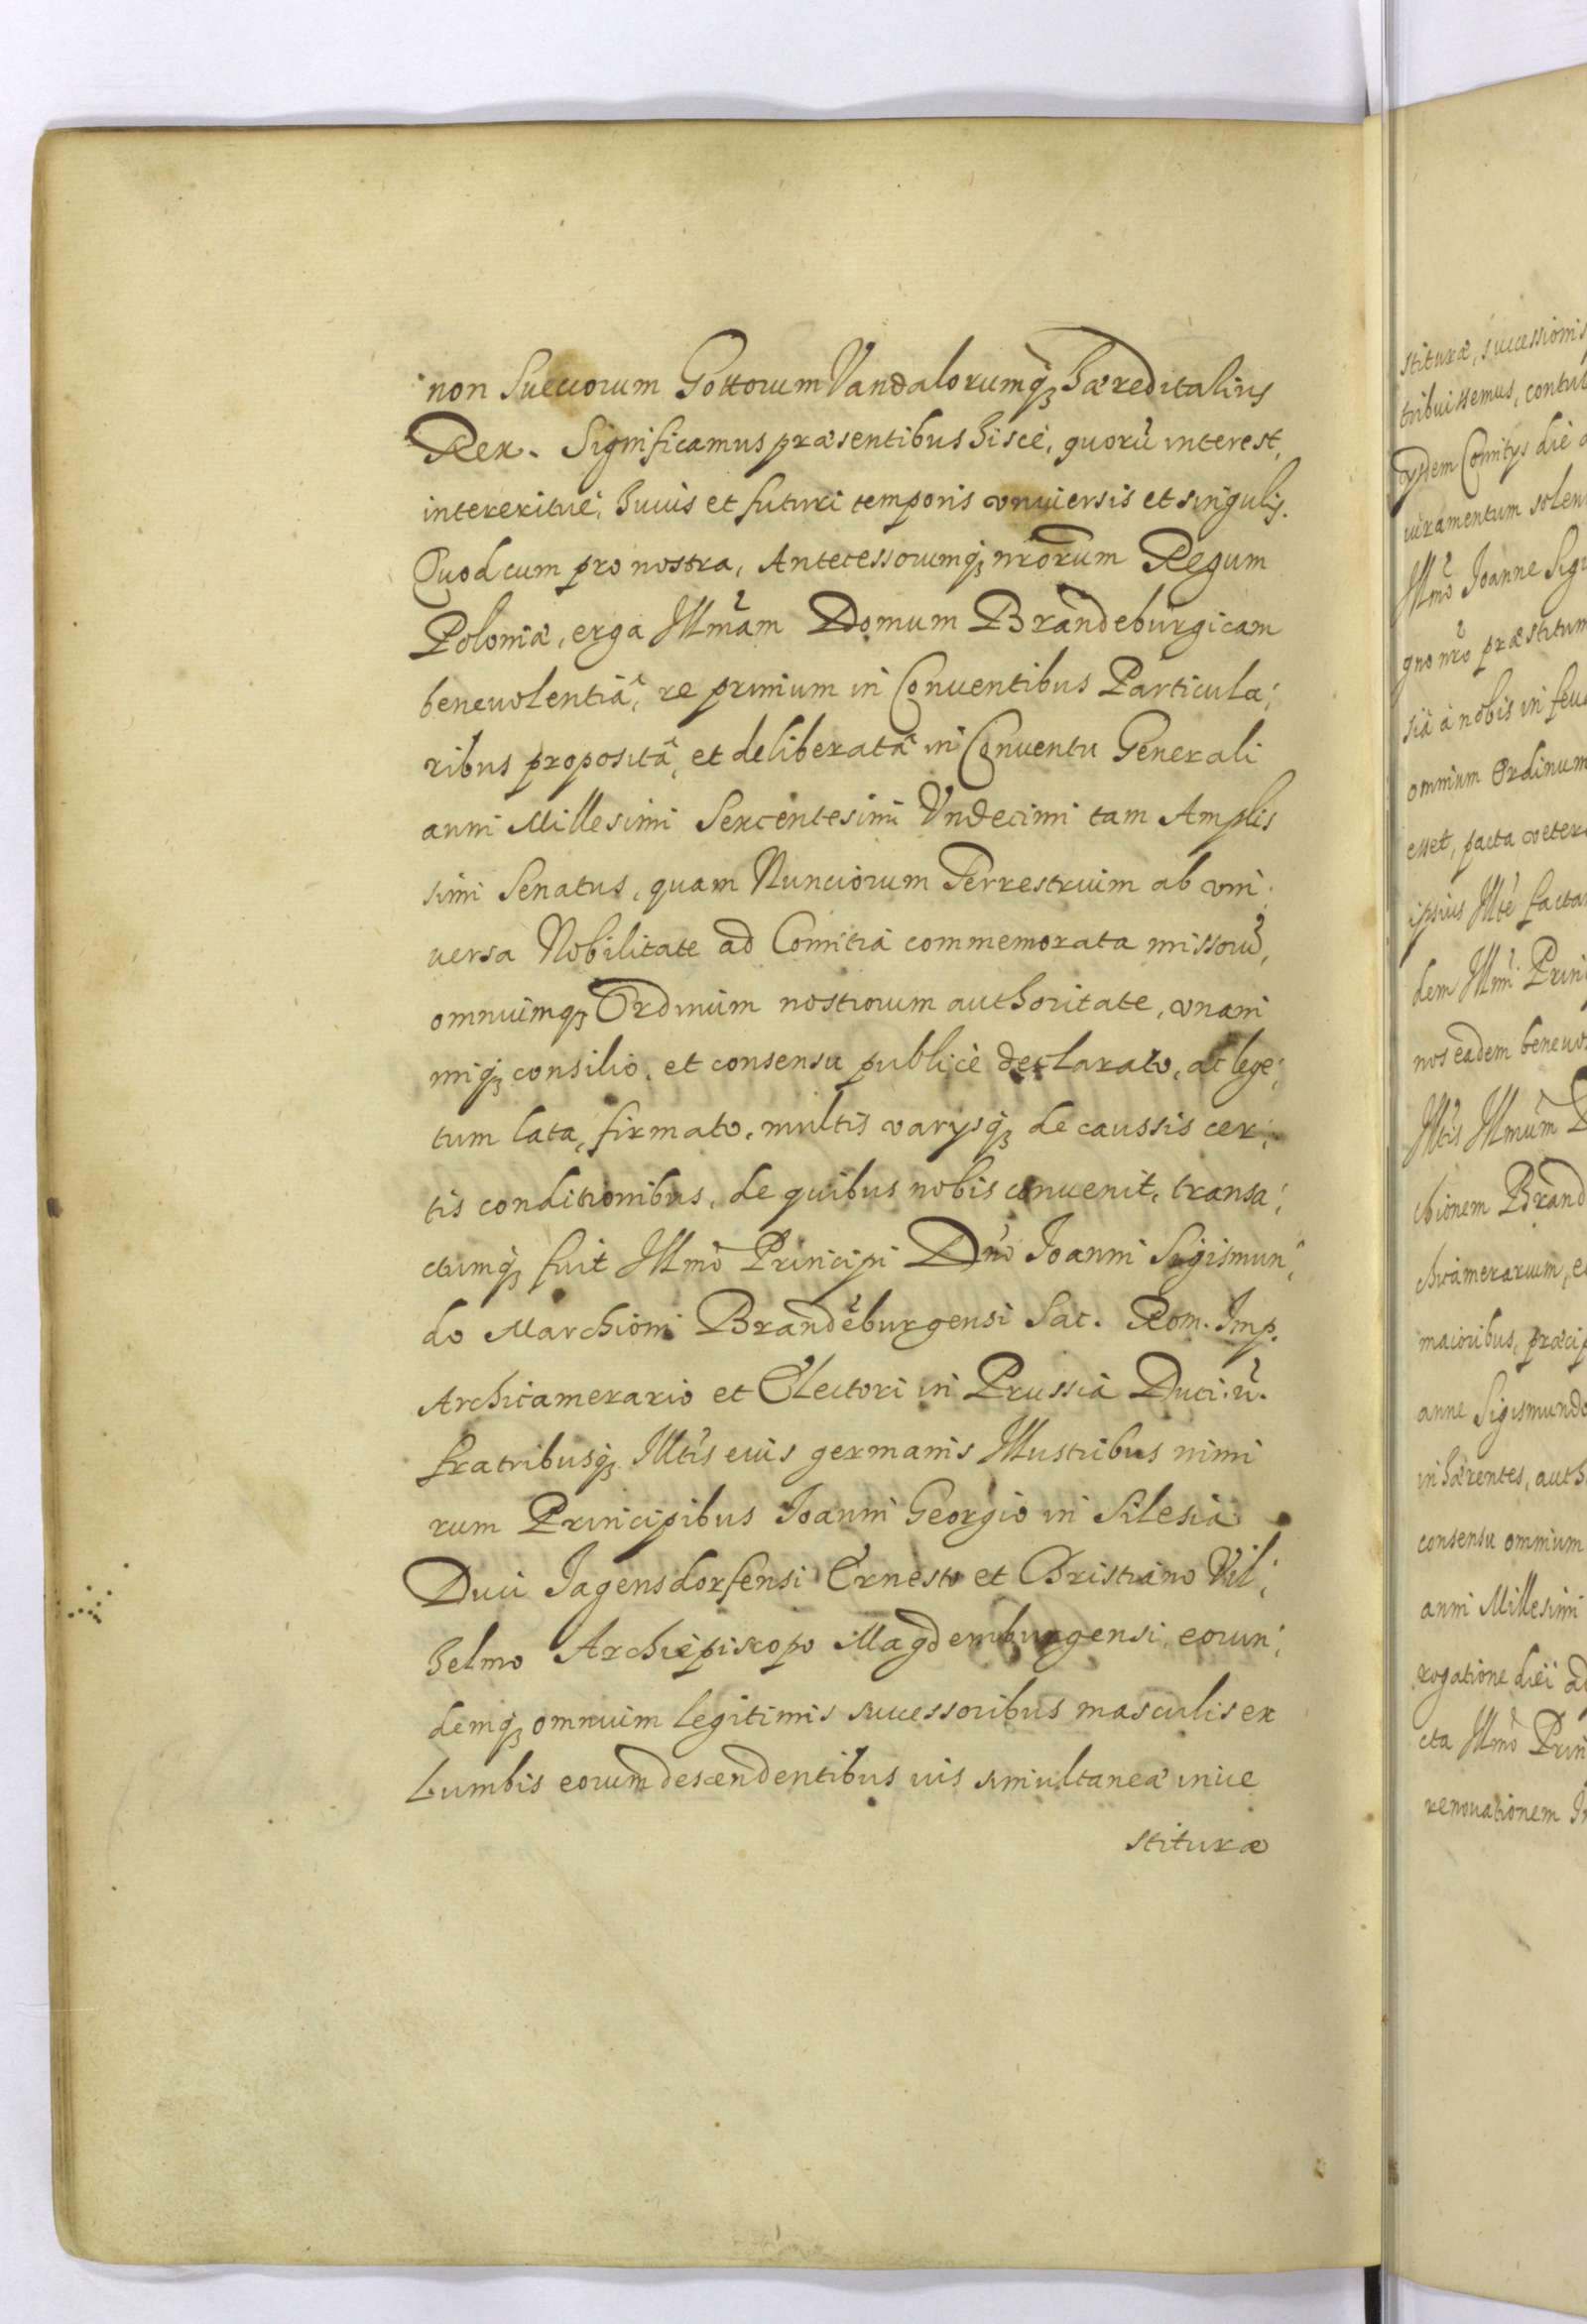 non Sueuorum Gottorum Vandalorumq̃ haereditarius
Rex. Significamus praesentibus hisce, quorũ interest,
intereritue, huius et futuri temporis vniuersis et singulis.
Quod cum pro nostra, Antecessorumq̃ nrõrum Regum
Poloniæ, erga Illmãm Domum Brandeburgicam
beneuolentiâ, re primum in Conuentibus Particula:
ribus propositâ, et deliberatâ in Conuentu Generali
anni Millesimi Sexcentesimi Vndecimi tam Amplis
simi Senatus, quam Nunciorum Terrestrium ab vni
uersa Nobilitate ad Comitia commemorata missorũ,
omniumq̃ Ordinum nostrorum authoritate, vnani
miq̃ consilio, et consensu publicè declarato, ac lege,
tum lata, firmato, multis varysq̃ de caussis cer:
tis conditionibus, de quibus nobis conuenit, transa:
ctumq̃ fuit Illmõ Principi Dnõ Ioanni Sigismun:
do Marchioni Brandeburgensi Sac. Rom. Imp.
Archicamerario et Electori in Prussia Duci. ũ.
fratribusq̃ Illtĩs eius germanis Illustribus nimi
rum Principibus Ioanni Georgio in Silesia
Duci Jagensdorfensi Ernesto et Christiano Vil:
helmo Archiepiscopo Magdemburgensi, eorun:
demq̃ omnium legitimis successoribus masculis ex
Lumbis eorum descendentibus ius simultaneæ inue
stituræ
stituræ, successionis
tribuissemus, contul
ysdem Comitys die
iuramentum solen
Illmõ Ioanne Sigi
gno nrõ præstitum
sia à nobis in feu
omnium Ordinum
esset, pacta veter
ipsius Illtẽ facta
dem Illmĩ Prin
nos eadem beneuo
Illtĩs Illmũm D
chionem Brand
chicamerarium, e
maioribus, præcip
anne Sigismundo
inhærentes, auth
consensu omnium
anni Millesimi
rogatione diei ad
cta Illmõ Prin
renouationem In